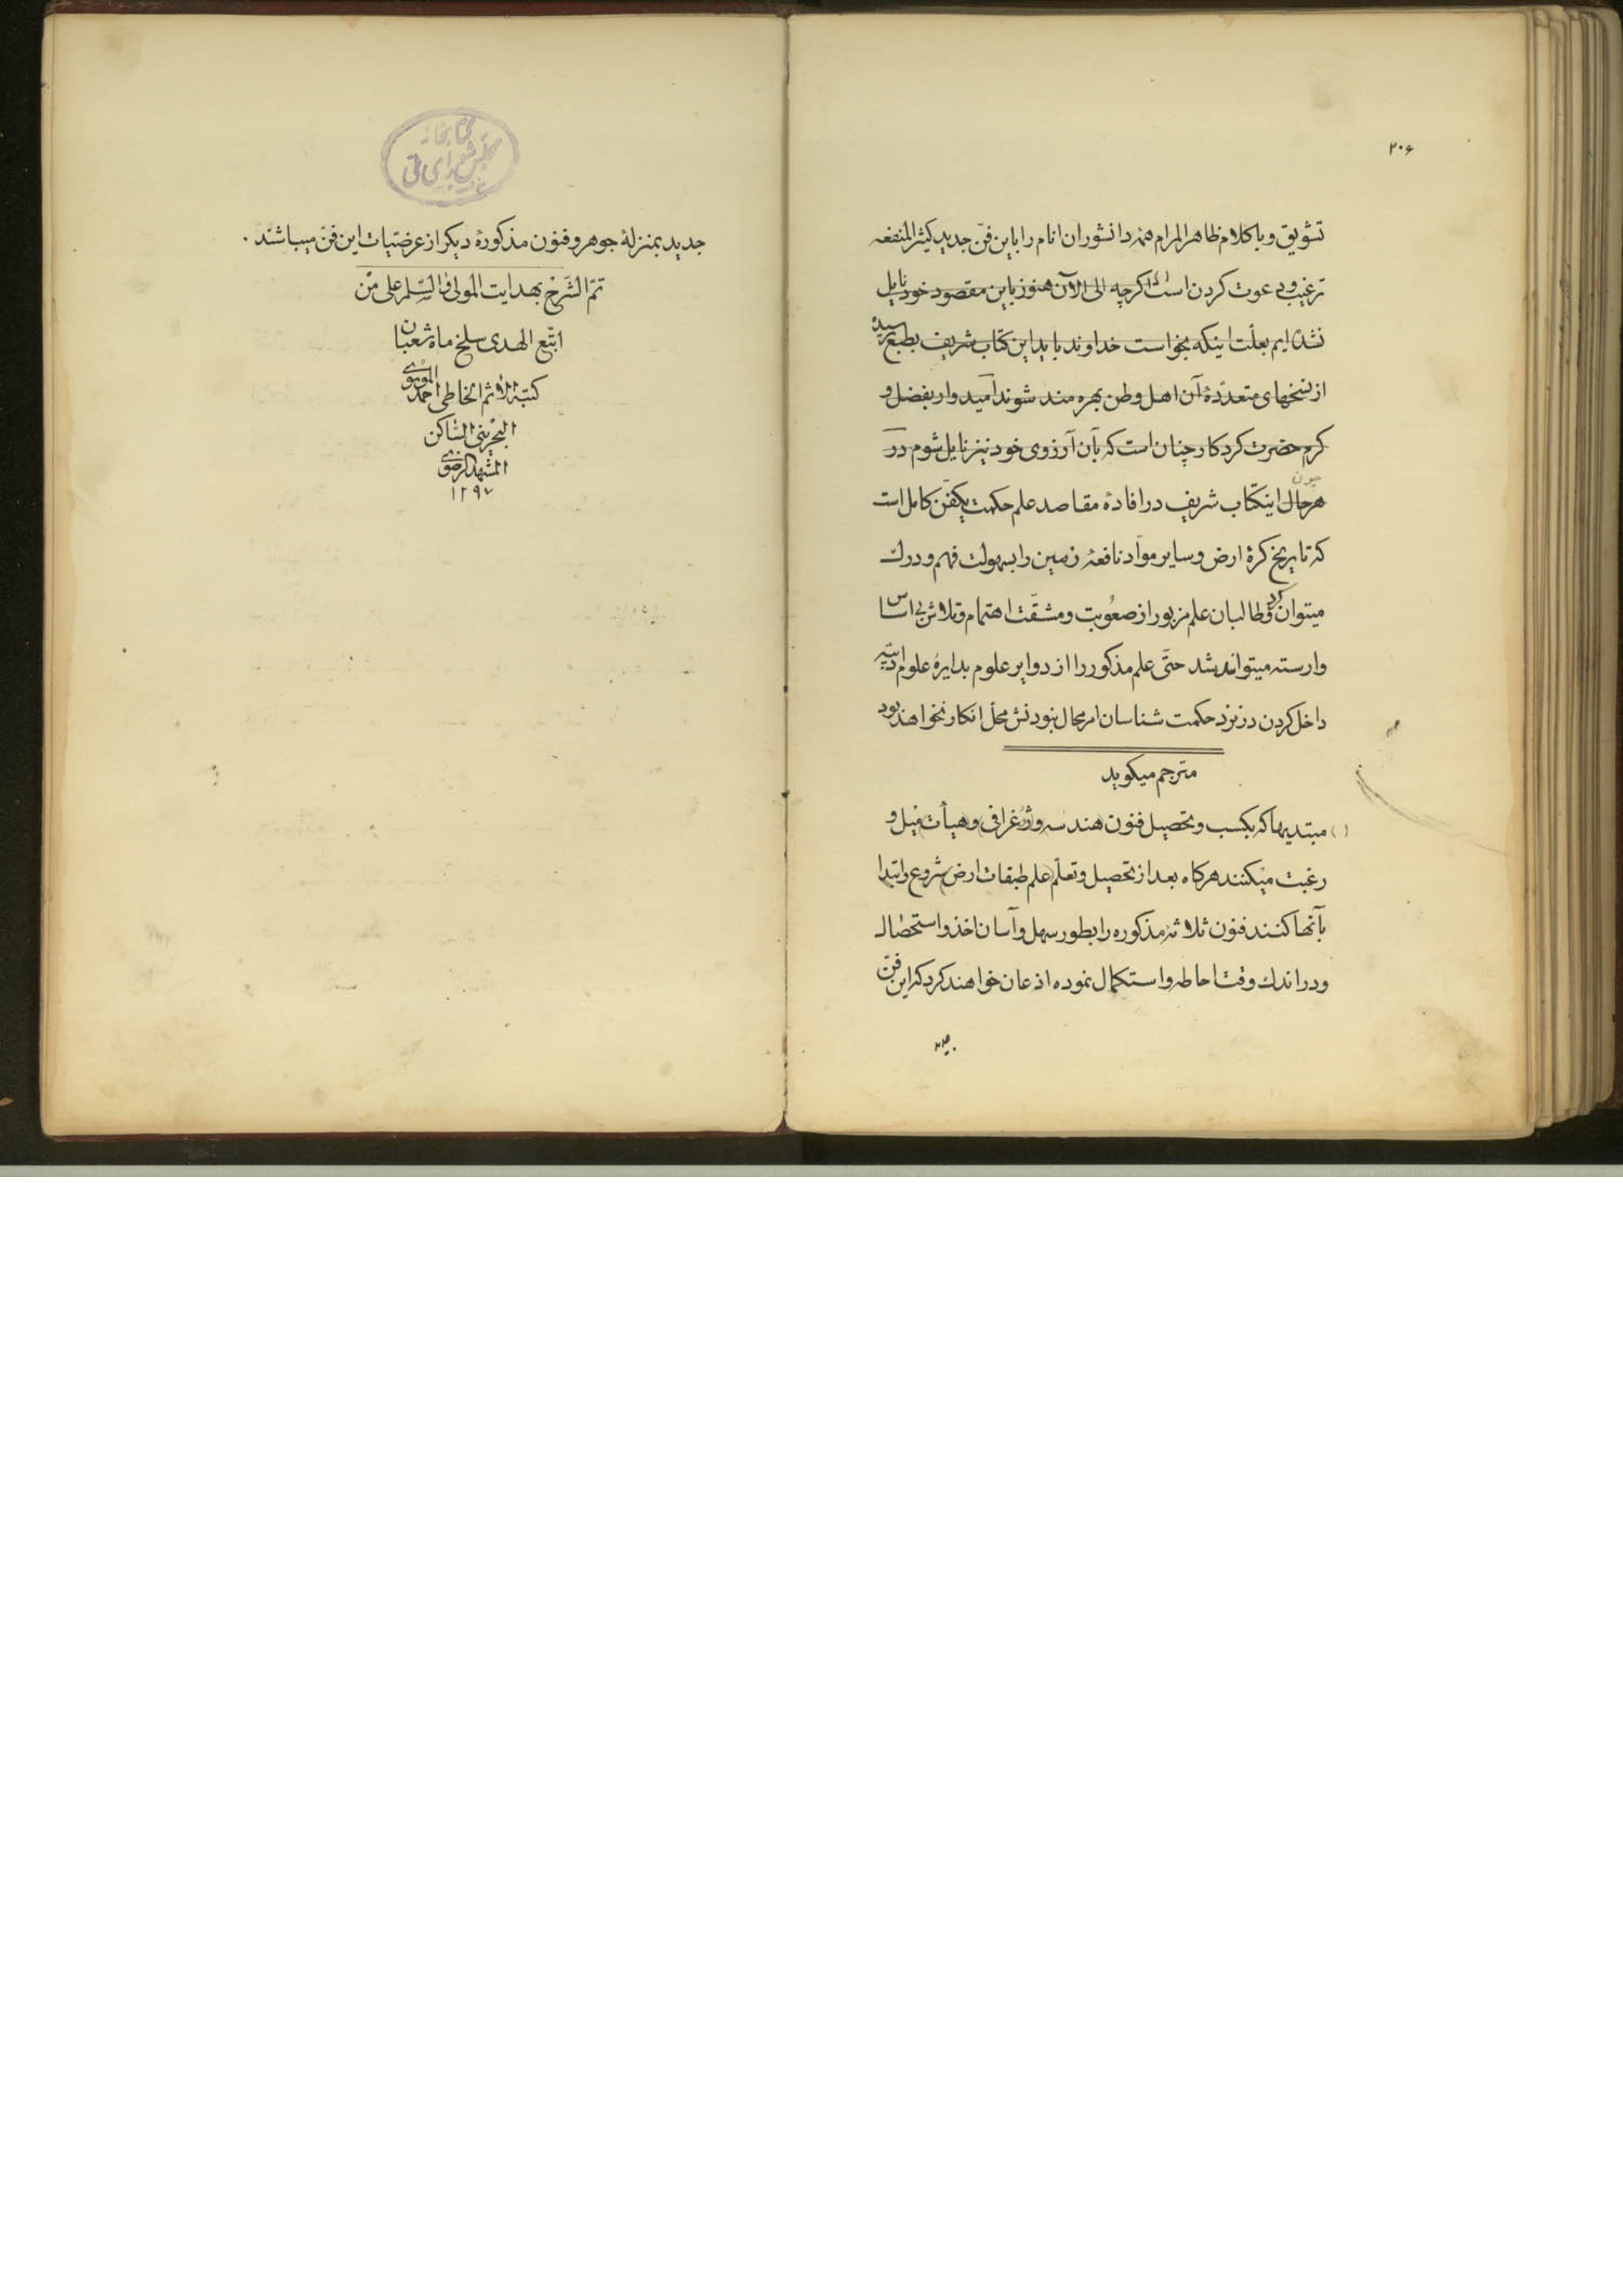 ۲۰۶
تشویق و با کلام ظاهر المرام همه دانشوران انام را باین فنّ جدید کثیر المنفعه
ترغیب و دعوت کردن است اکرچه الی الآن هنوز باین مقصود خود نایل
نشده‌ایم بعلّت اینکه بخواست خداوند باید این کتاب شریف بطبع رسیده
از نسخهای متعدّدهٔ آن اهل وطن بهره مند شوند امّیدوار بفضل و
کرم حضرت کردکار چنان است که بآن آرزوی خود نیز نایل شوم در
چون
هرحال اینکتاب شریف در افادهٔ مقاصد علم حکمت یکفنّ کامل است
که تاریخ کرهٔ ارض و سایر موادّ نافعهٔ زمین را بسهولت فهم و درک
میتوان کرد و طالبان علم مزبور از صعوبت و مشقّت اهتمام و تلاش بی اساس
وارسته میتواند شد حتّی علم مذکور را از دوایر علوم بدایرهٔ علوم ادبیّه
داخل کردن در نزد حکمت شناسان امر محال نبودنش محلّ انکار نخواهد بود
مترجم میکوید
() مبتدیها که بکسب و تحصیل فنون هندسه و ژئغرافی و هیأت میل و
رغبت میکنند هرکاه بعد از تحصیل و تعلّم علم طبقات ارض شروع و ابتدا
بآنها کنند فنون ثلاثهٔ مذکوره را بطور سهل و آسان اخذ و استحصال
و در اندک وقت احاطه و استکمال نموده اذعان خواهند کرد که این فنّ
جدید
کتابخانهٔ
مجلس شورای ملی
جدید بمنزلهٔ جوهر و فنون مذکورهٔ دیکر از عرضیّات این فنّ میباشند .
تمّ الشّرح بهدایت المولی و السّلم علی من
اتّبع الهدی سلخ ماه شعبان
کتبه الاثم الخاطی احمد الموسوی
البحرینی السّاکن
المشهد الرضوی
۱۲۹۷